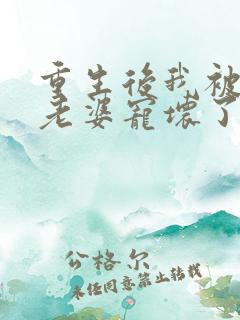 重生後我被
老婆寵壞了
公格尔
未经同意禁止转载